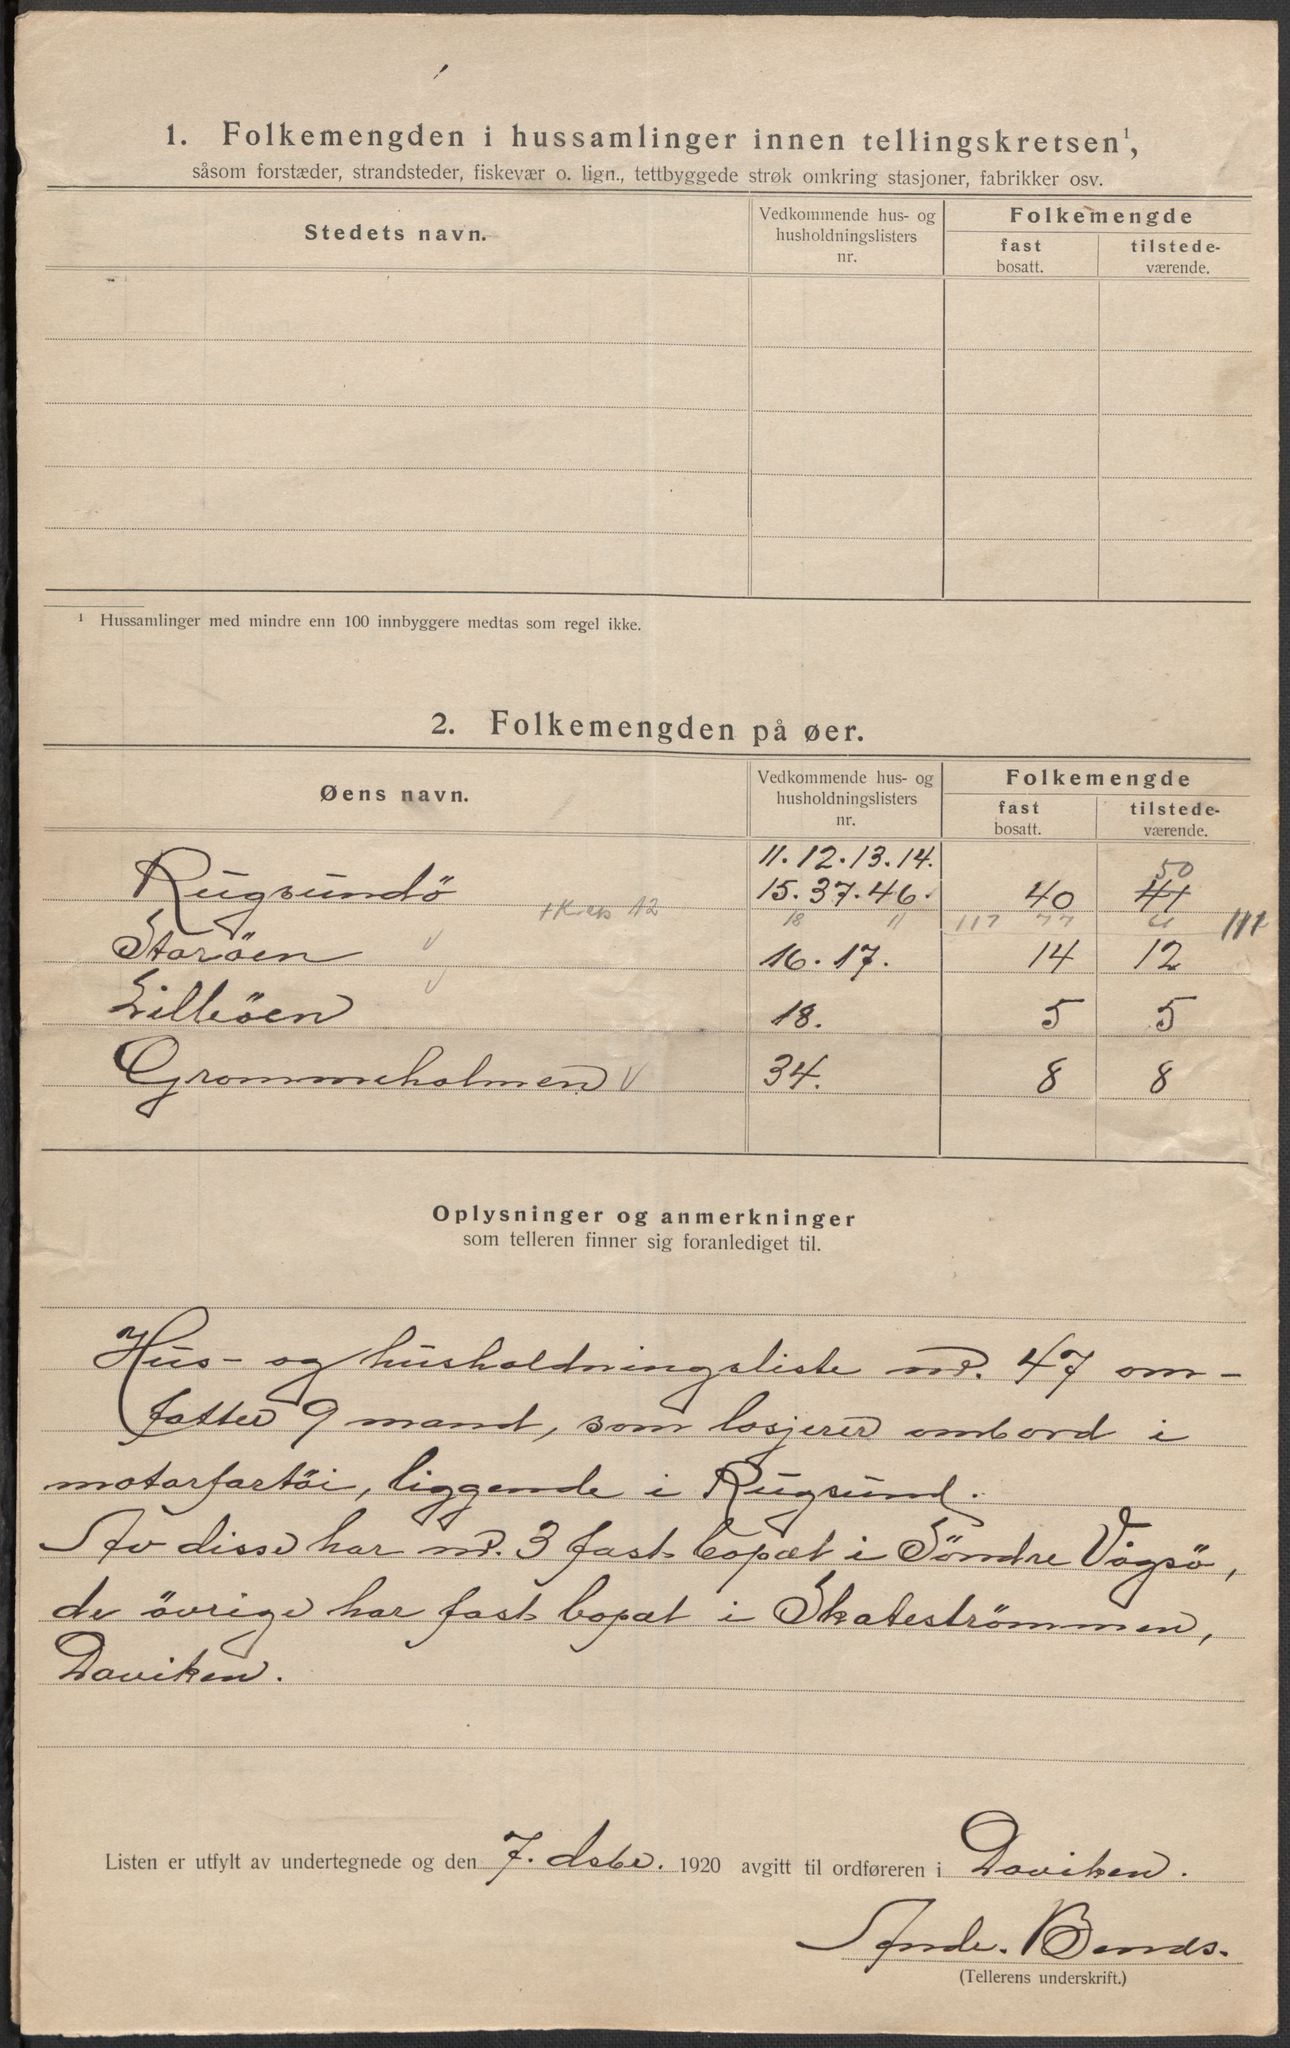 1. Folkemengden i hussamlinger innen tellingskretsen¹,
såsom forstæder, strandsteder, fiskevær o. lign., tettbyggede strøk omkring stasjoner, fabrikker osv.
Stedets navn.
Vedkommende hus- og
husholdningslisters
nr.
Folkemengde
fast
bosatt.
tilstede-
værende.
¹ Hussamlinger med mindre enn 100 innbyggere medtas som regel ikke.
2. Folkemengden på øer.
Øens navn.
Vedkommende hus- og
husholdningslisters
nr.
Folkemengde
fast
bosatt.
tilstede-
værende.
11. 12. 13. 14.
50
Rugsundö 15. 37. 46. 40 41
+ Kreds 12 18 11 117 77 111
Storöen 16. 17. 14 12
Lilleöen 18. 5 5
Grommeholmen 34. 8 8
Oplysninger og anmerkninger
som telleren finner sig foranlediget til.
Hus- og husholdningsliste nr. 47 om-
fatter 9 mand, som losjerer ombord i
motorfartöi, liggende i Rugsund.
Av disse har nr. 3 fast bopæl i Söndre Vågsö,
de övrige har fast bopæl i Skatestrømmen,
Daviken.
Listen er utfylt av undertegnede og den 7. dsbr. 1920 avgitt til ordføreren i Daviken.
Ande. Bends.
(Tellerens underskrift.)